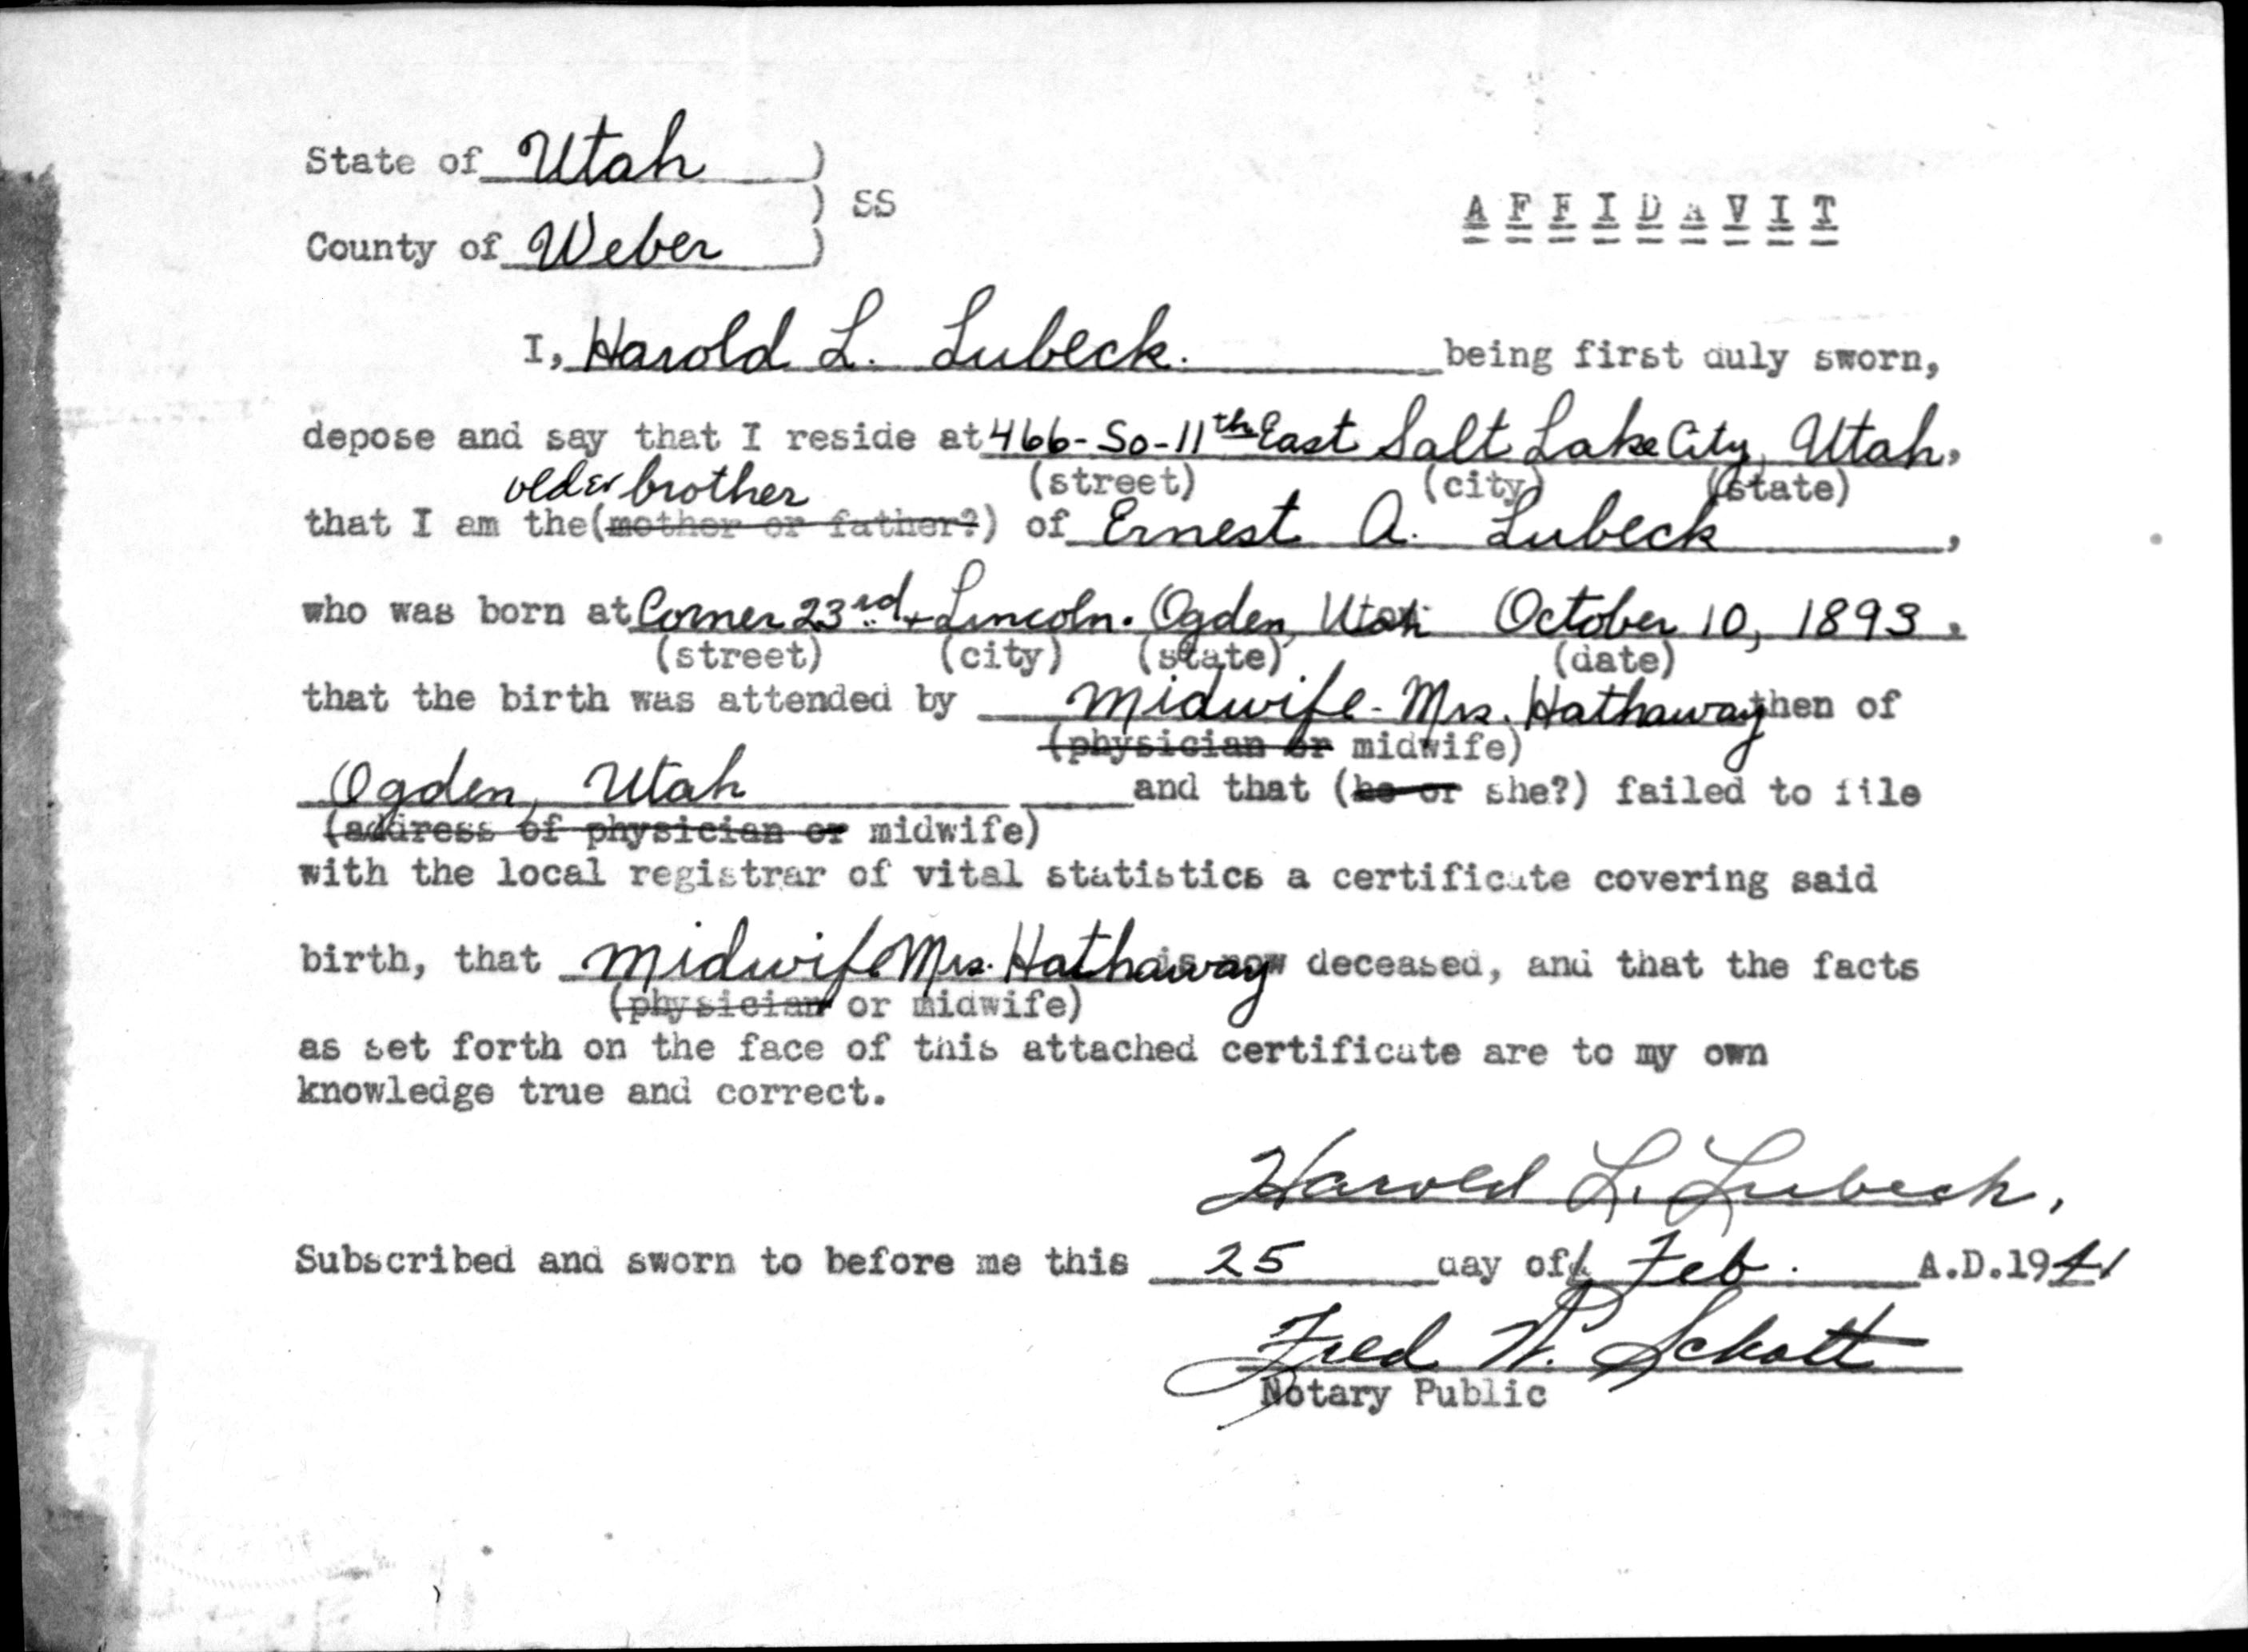 State of Utah )
) SS
AFFIDAVIT
County of Weber )
I, Harold L. Lubeck. being first duly sworn,
depose and say that I reside at 466-So-11th East Salt Lake City, Utah,
(street) (city) (state)
older brother
that I am the (mother or father?) of Ernest A. Lubeck,
who was born at Corner 23rd + Lincoln. Ogden, Utah October 10, 1893.
(street) (city) (state) (date)
that the birth was attended by Midwife - Mrs. Hathaway then of
(physician or midwife)
Ogden, Utah and that (he or she?) failed to file
(address of physician or midwife)
with the local registrar of vital statistics a certificate covering said
birth, that Midwife Mrs. Hathaway is now deceased, and that the facts
(physician or midwife)
as set forth on the face of this attached certificate are to my own
knowledge true and correct.
Harold L. Lubeck.
Subscribed and sworn to before me this 25 day of Feb. A.D.1941
Fred W. Schott
Notary Public